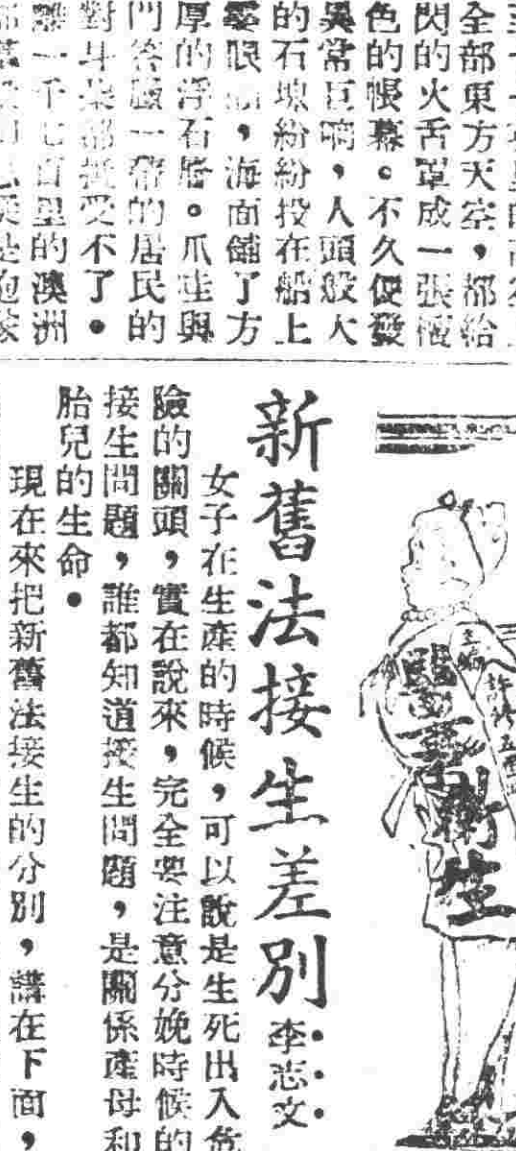 全部東方天空，都給
閃的火舌罩成一張
色的帳幕。不久便發
異常巨响，人頭般大
的石塊紛紛投在船上
海面鋪了方
厚的浮石層。爪哇與
的居民的
受不了。
里的澳洲
主編
醫藥衛生
新舊法接生差別
李志文
女子在生產的時候，可以說是生死出入危
險的關頭，實在說來，完全要注意分娩時候的
接生問題，誰都知道接生問題，是關係產母和
胎兒的生命。
現在來把新舊法接生的分別，講在下面，